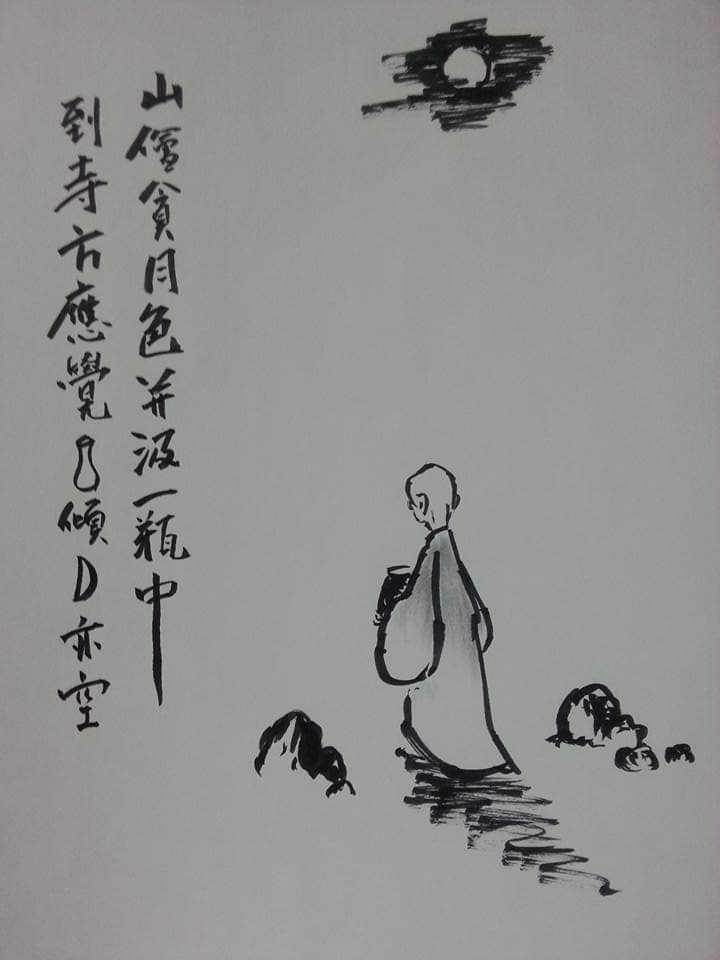 山僧貪月色并汲一瓶中
到寺方應覺傾亦空